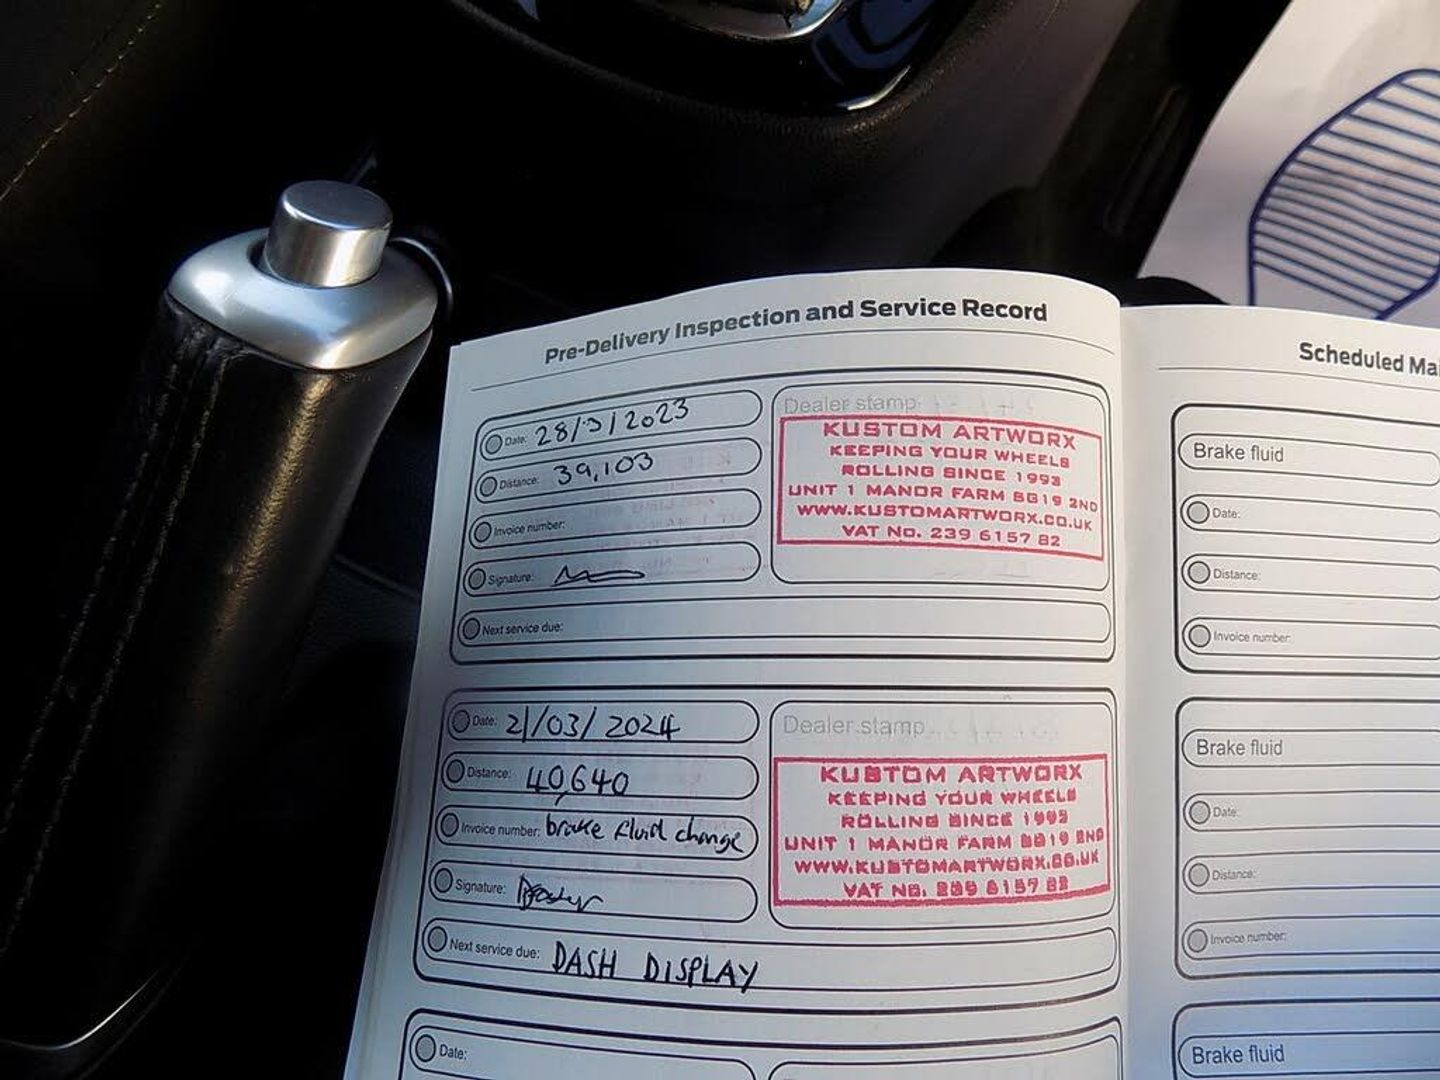 Pre-Delivery Inspection and Service Record
Date: 28/3/2023
Distance: 39,103
Invoice number:
Signature:
Next service due:
Dealer stamp
KUSTOM ARTWORX
KEEPING YOUR WHEELS
ROLLING SINCE 1993
UNIT 1 MANOR FARM SG19 2ND
WWW.KUSTOMARTWORX.CO.UK
VAT No. 239 6157 82
Date: 21/03/2024
Distance: 40,640
Invoice number: brake fluid change
Signature:
Next service due: DASH DISPLAY
Dealer stamp
KUSTOM ARTWORX
KEEPING YOUR WHEELS
ROLLING SINCE 1993
UNIT 1 MANOR FARM SG19 2ND
WWW.KUSTOMARTWORX.CO.UK
VAT No. 239 6157 82
Date:
Scheduled Mai
Brake fluid
Date:
Distance:
Invoice number:
Brake fluid
Date:
Distance:
Invoice number:
Brake fluid